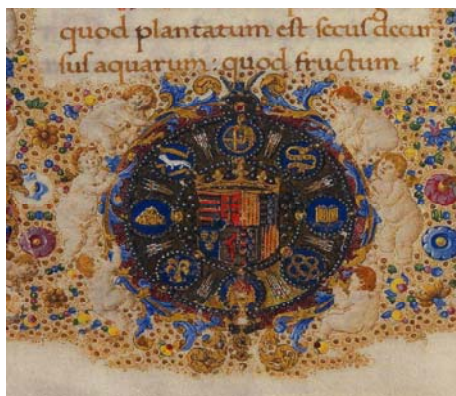 quod plantatum est secus decur
sus aquarum: quod fructum &